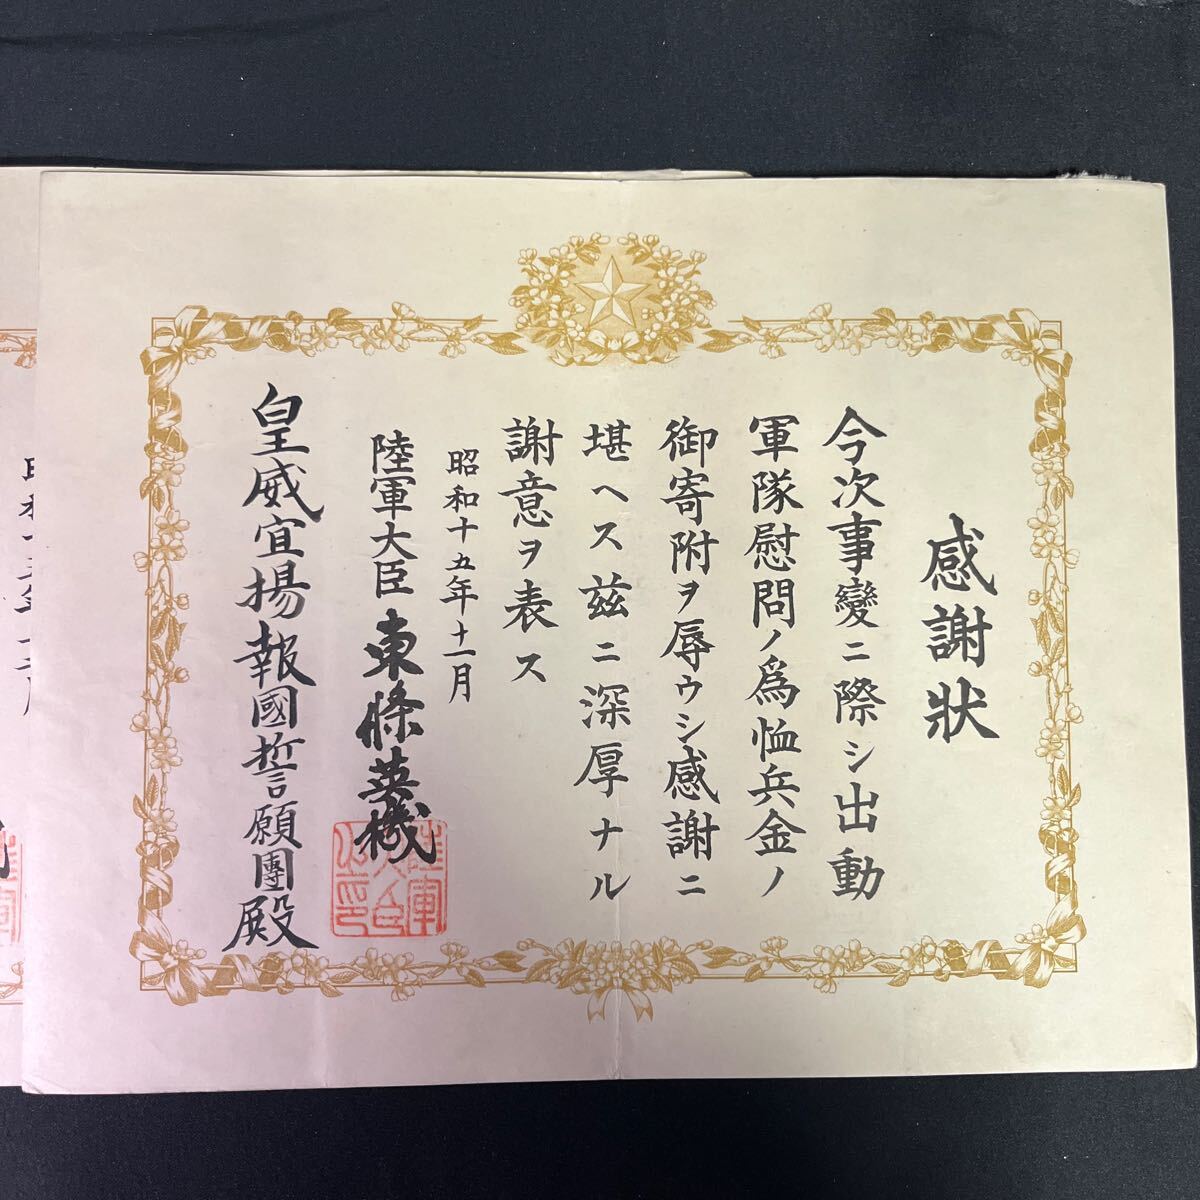 感謝狀
今次事變ニ際シ出動
軍隊慰問ノ爲恤兵金ノ
御寄附ヲ辱ウシ感謝ニ
堪ヘス茲ニ深厚ナル
謝意ヲ表ス
昭和十五年十一月
陸軍大臣 東條英機
陸軍
大臣
之印
皇威宣揚報國誓願團殿